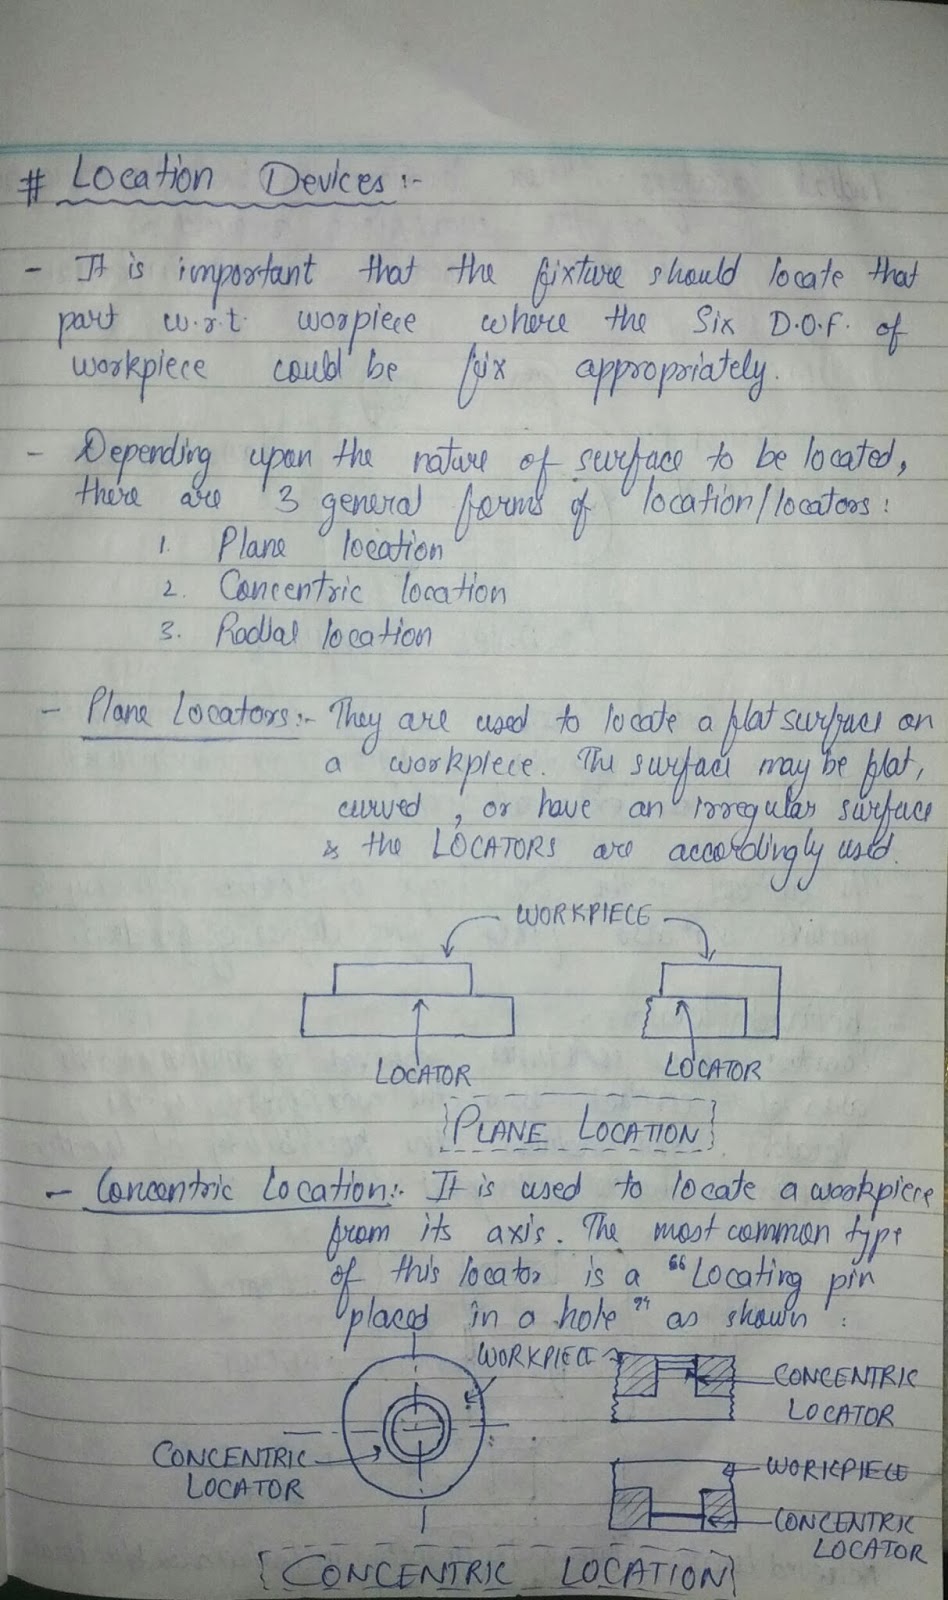 # Location Devices :-
- It is important that the fixture should locate that
part w.r.t. worpiece where the Six D.O.F. of
workpiece could be fix appropriately.
- Depending upon the nature of surface to be located,
there are 3 general forms of location/locators :
1. Plane location
2. Concentric location
3. Radial location
- Plane Locators :- They are used to locate a flat surface on
a workpiece. The surface may be flat,
curved, or have an irregular surface
& the LOCATORS are accordingly used.
WORKPIECE
LOCATOR LOCATOR
PLANE LOCATION
- Concentric Location :- It is used to locate a workpiece
from its axis. The most common type
of this locator is a "Locating pin
placed in a hole" as shown :
WORKPIECE
CONCENTRIC
LOCATOR
CONCENTRIC
LOCATOR
WORKPIECE
CONCENTRIC
LOCATOR
CONCENTRIC LOCATION